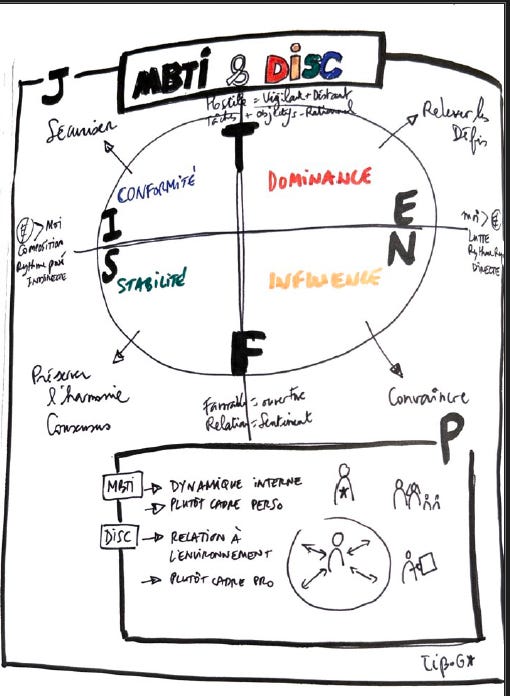 J
MBTI & DISC
Hostile = Vigilant + Distant
Tâches + objectifs - Rationnel
T
Sécuriser
Relever les
Défis
CONFORMITÉ
DOMINANCE
I
E
> MOI
COMPOSITION
Rythme posé
INDIRECTE
MOI >
LUTTE
Rythme
DIRECTE
S
N
STABILITÉ
INFLUENCE
F
Préserver
l'harmonie
Consensus
Convaincre
Favorable = ouverture
Relation = Sentiment
P
MBTI → DYNAMIQUE INTERNE
→ PLUTÔT CADRE PERSO
DISC → RELATION À
L'ENVIRONNEMENT
→ PLUTÔT CADRE PRO